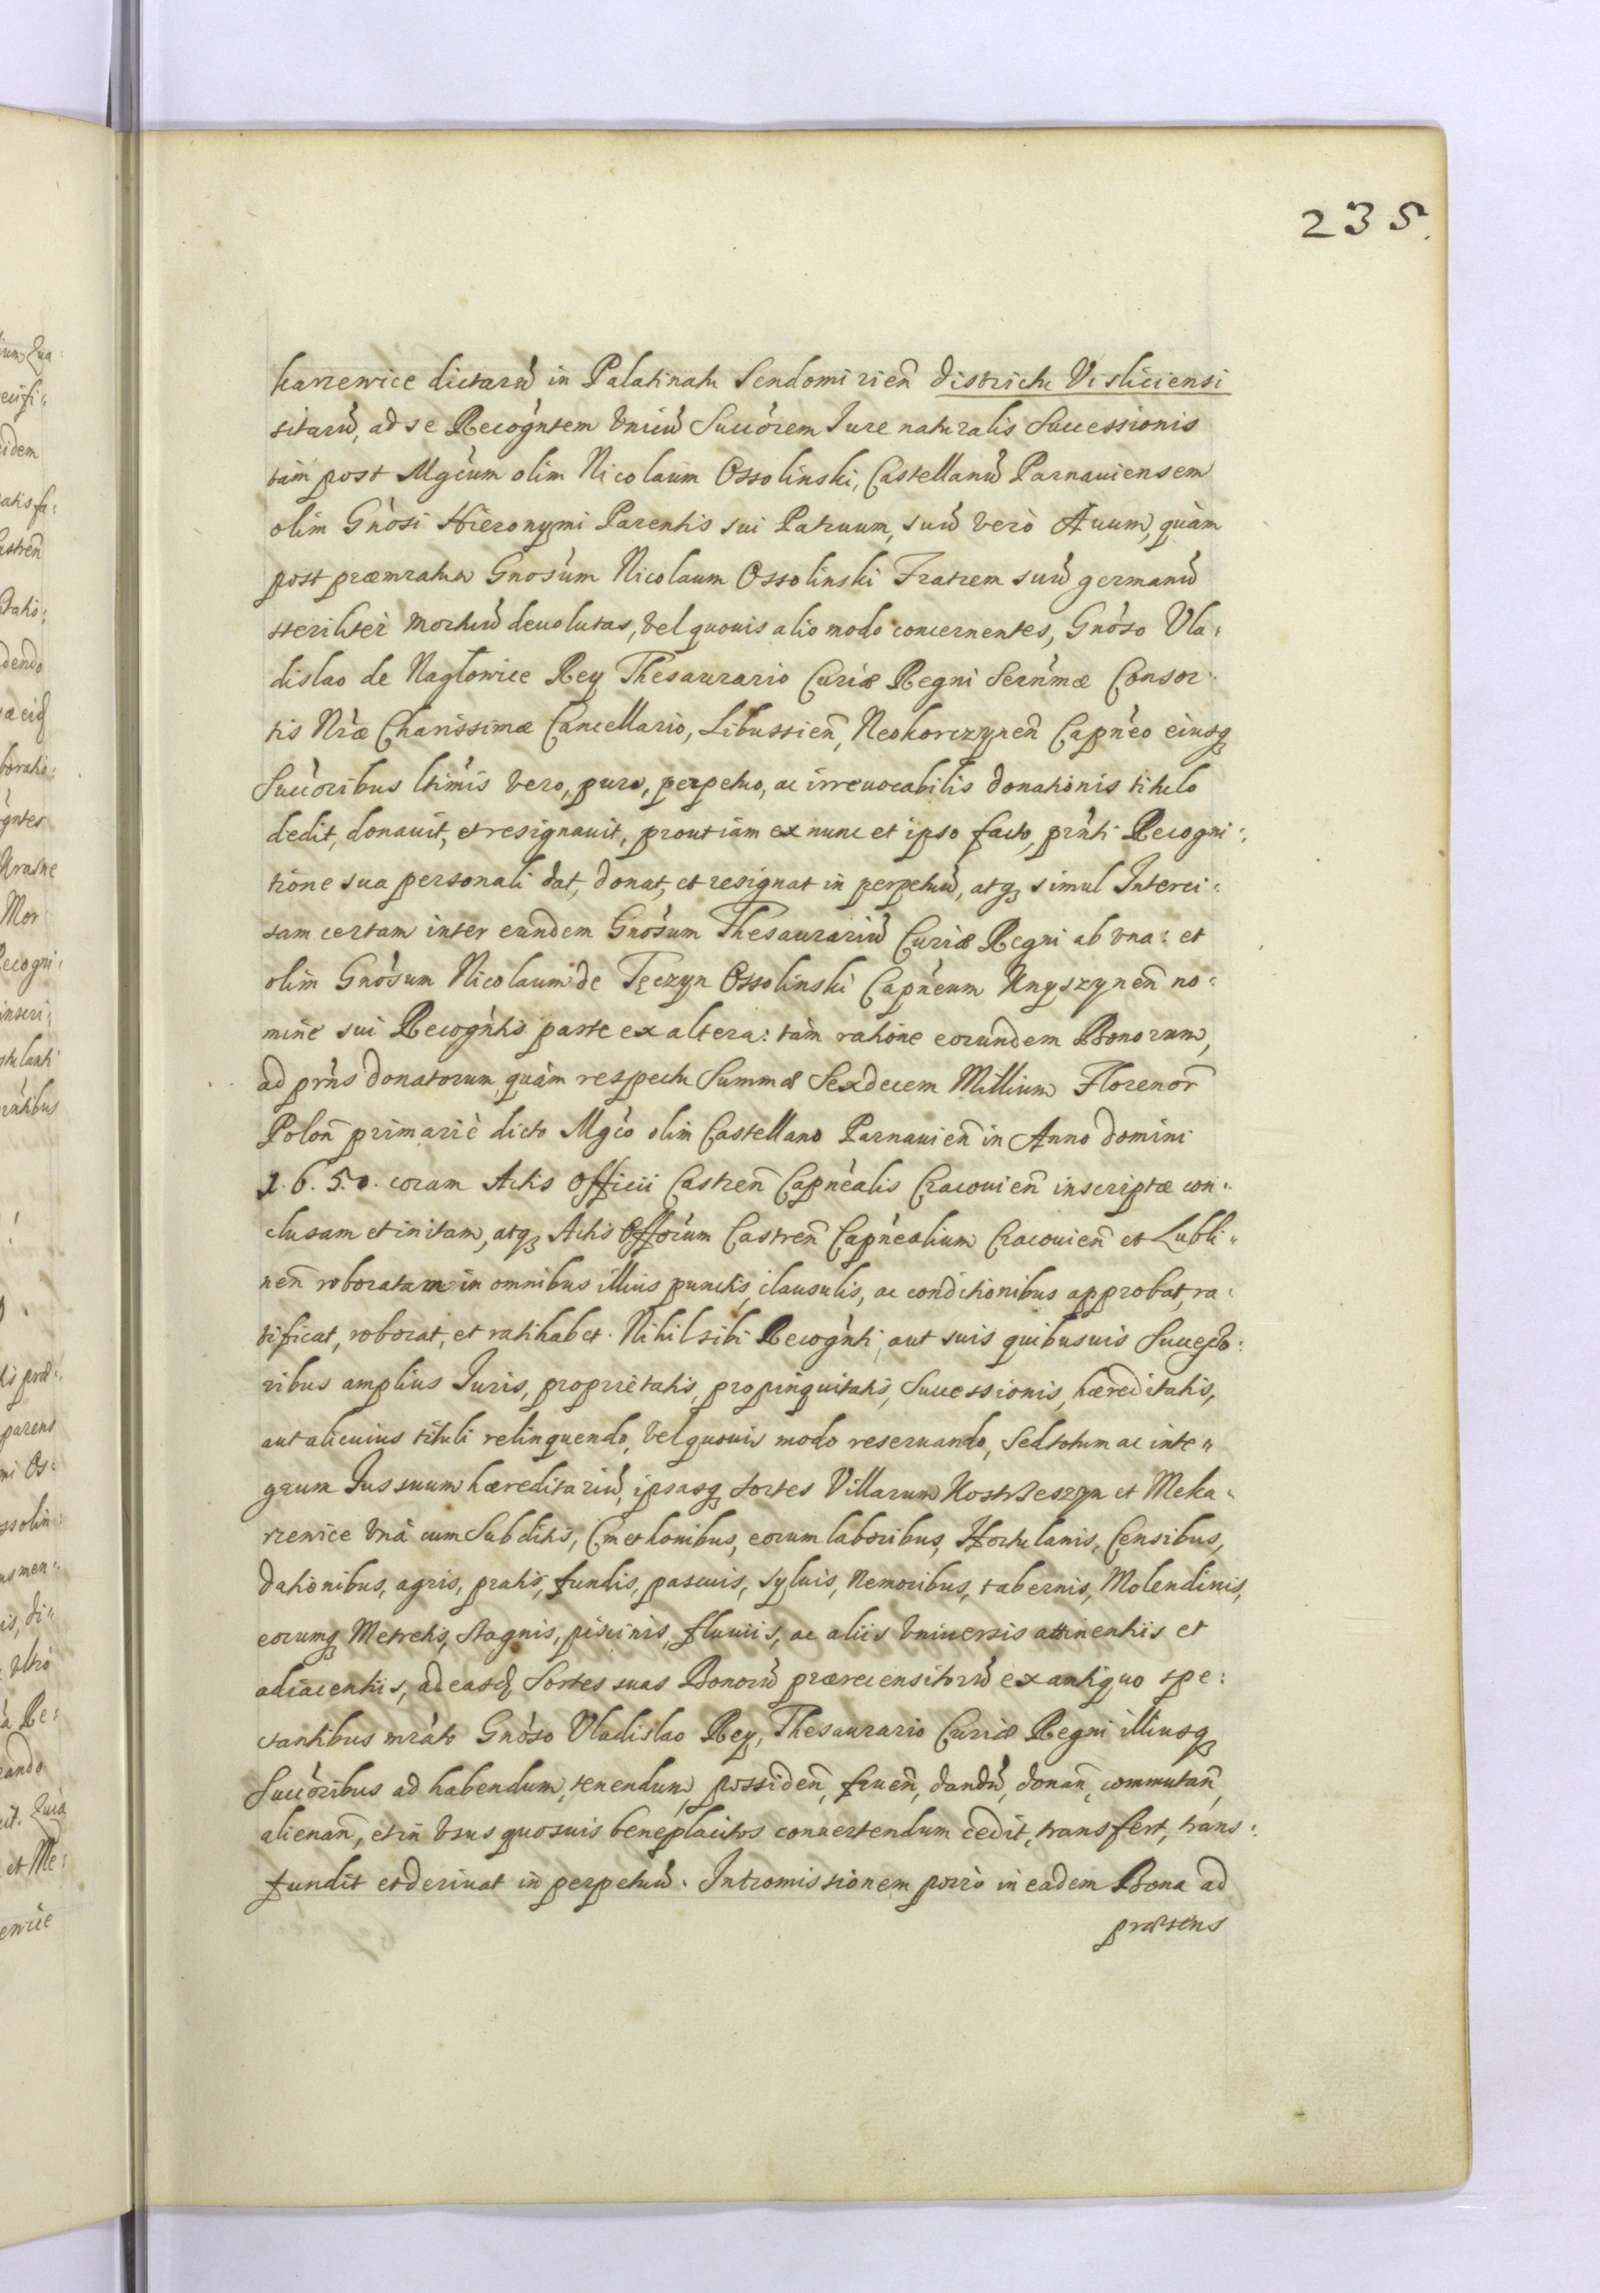 235.
karzewice dictarũ in Palatinatu Sendomirien̄ districtu Visliciensi
sitarũ, ad se Recogñtem Vnicũ Succ̃orem Iure naturalis Successionis
tàm post Mgc̃um olim Nicolaum Ossolinski, Castellanũ Parnauiensem
olim Gñosi Hieronymi Parentis sui Patruum, suũ verò Auum, quàm
post præmratum Gnos̃um Nicolaum Ossolinski Fratrem suũ germanũ
steriliter mortuũ deuolutas, vel quouis alio modo concernentes, Gñoso Vla:
dislao de Nagłowice Rey Thesaurario Curiæ Regni Serñmæ Consor:
tis Nr̃æ Charissimæ Cancellario, Libussien̄, Neokorczynen̄ Capñeo eiusq3
Succ̃oribus ltimis vero, puro, perpetuo, ac irreuocabilis donationis titulo
dedit, donauit, et resignauit, prout iam ex nunc et ipso facto, prñti Recogni:
tione sua personali dat, donat, et resignat in perpetuũ, atq3 simul Interci:
sam certam inter eundem Gnos̃um Thesaurariũ Curiæ Regni ab vna: et
olim Gnos̃um Nicolaum de Tęczyn Ossolinski Capñeum Knyszynen̄ no:
mine sui Recogñtis parte ex altera: tàm ratione eorundem Bonorum,
ad prñs donatorum quàm respectu Summæ Sexdecem Millium Florenor̄
Polon̄ primariè dicto Mgc̃o olim Castellano Parnauien̄ in Anno domini
1.6.5.0. coram Actis Officii Castren̄ Capñealis Cracouien̄ inscriptæ con:
clusam et initam, atq3 Actis Offorũm Castren̄ Capñealium Cracouien̄ et Lubli:
nen̄ roboratam in omnibus illius punctis, clausulis, ac conditionibus approbat, ra:
tificat, roborat, et ratihabet. Nihil sibi Recogñti, aut suis quibusuis Successo:
ribus amplius Iuris, proprietatis, propinquitatis, Successionis, hæreditatis,
aut alicuius tituli relinquendo, vel quouis modo reseruando, Sed totum ac inte:
grum Ius suum hæreditariũ, ipsasq3 sortes Villarum Kostrzeszyn et Meka:
rzewice Vnà cum Subditis, Cmethonibus, eorum laboribus, Hortulanis, Censibus,
dationibus, agris, pratis, fundis, pascuis, syluis, Nemoribus, tabernis, Molendinis,
eorumq3 Metretis, stagnis, piscinis, fluuiis, ac aliis Vniuersis attinentiis et
adiacentiis, ad easd̃ Sortes suas Bonorũ præcensitorũ ex antiquo spe:
ctantibus mrãto Gñoso Vladislao Rey, Thesaurario Curiæ Regni illiusq3
Succ̃oribus ad habendum, tenendum, possiden̄, fruen̄, dandũ, donan̄, commutan̄,
alienan̄, et in Vsus quosuis beneplacitos conuertendum cedit, transfert, trans:
fundit et deriuat in perpetuũ. Intromissionem porrò in eadem Bona ad
præsens